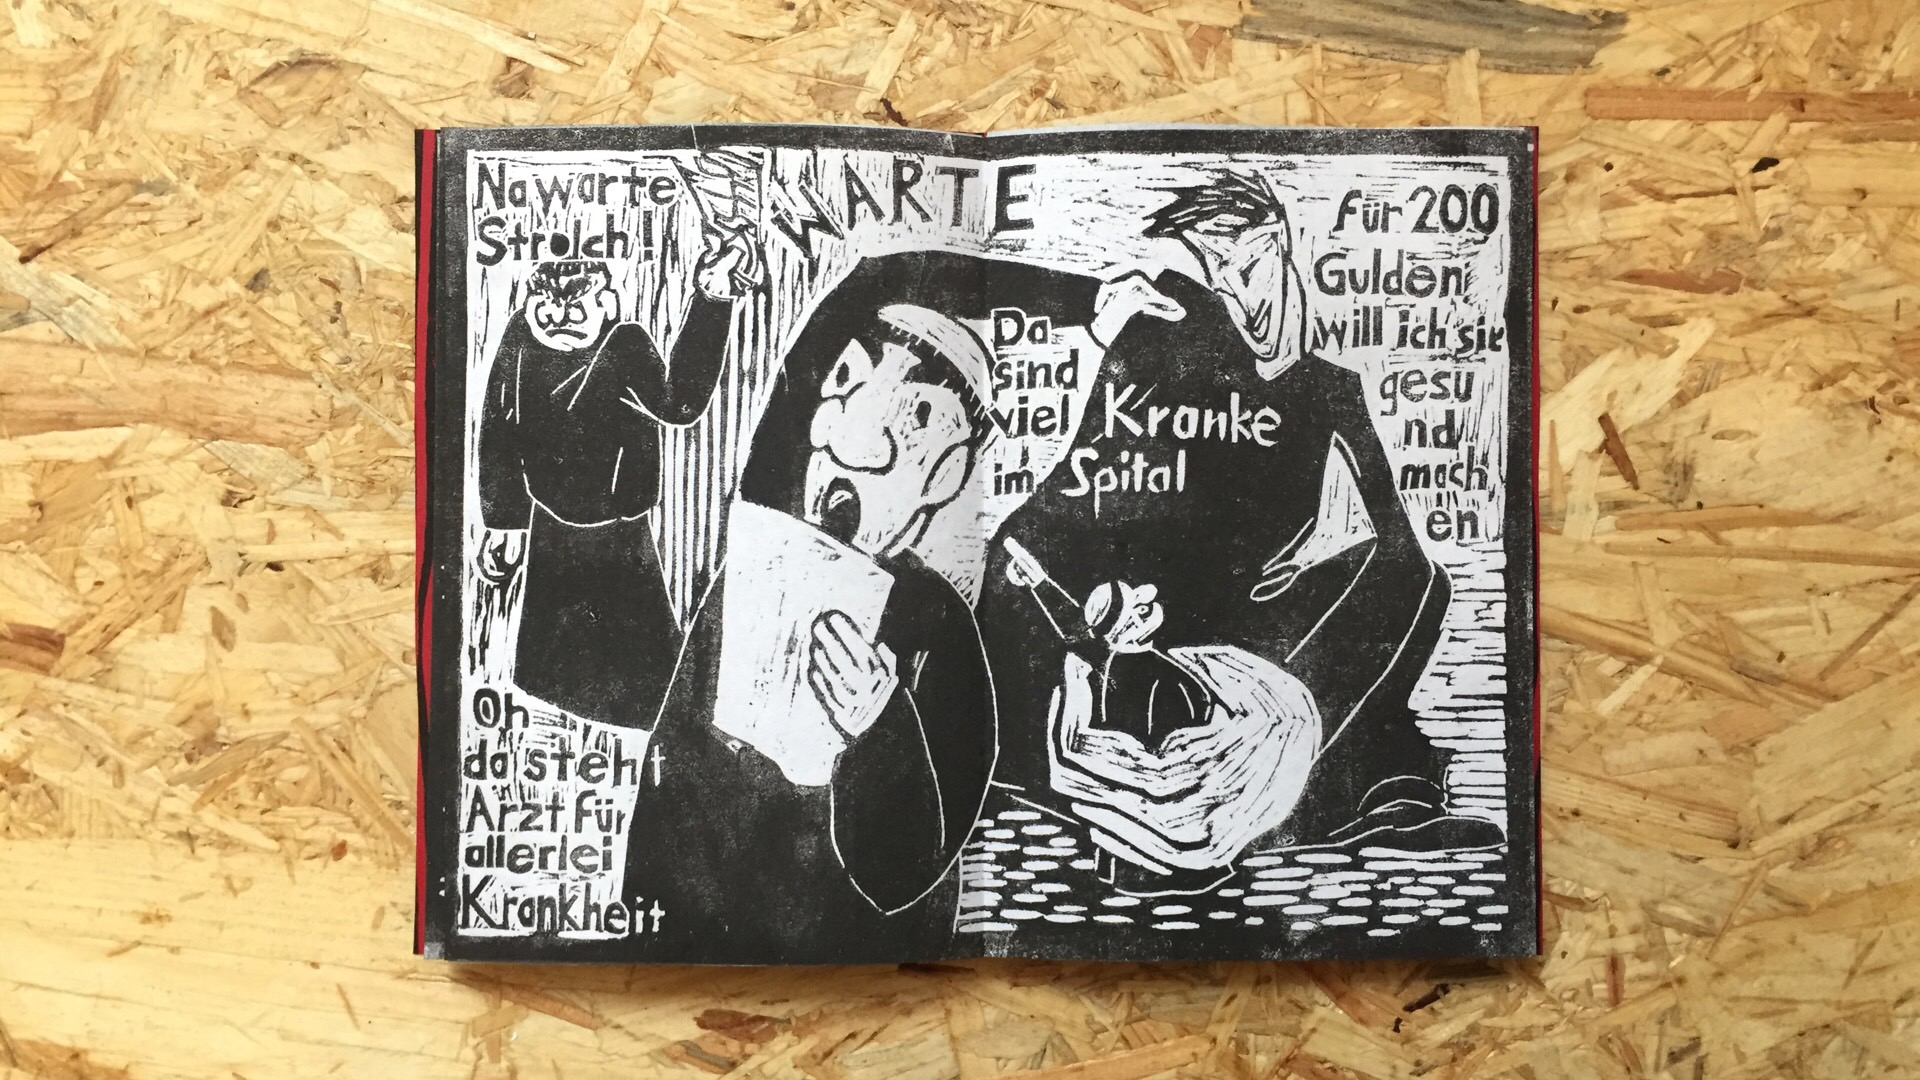 Na warte
Strolch!
WARTE
Oh
da steht
Arzt für
allerlei
Krankheit
Da
sind
viel Kranke
im Spital
für 200
Gulden
will ich sie
gesu
nd
mach
en